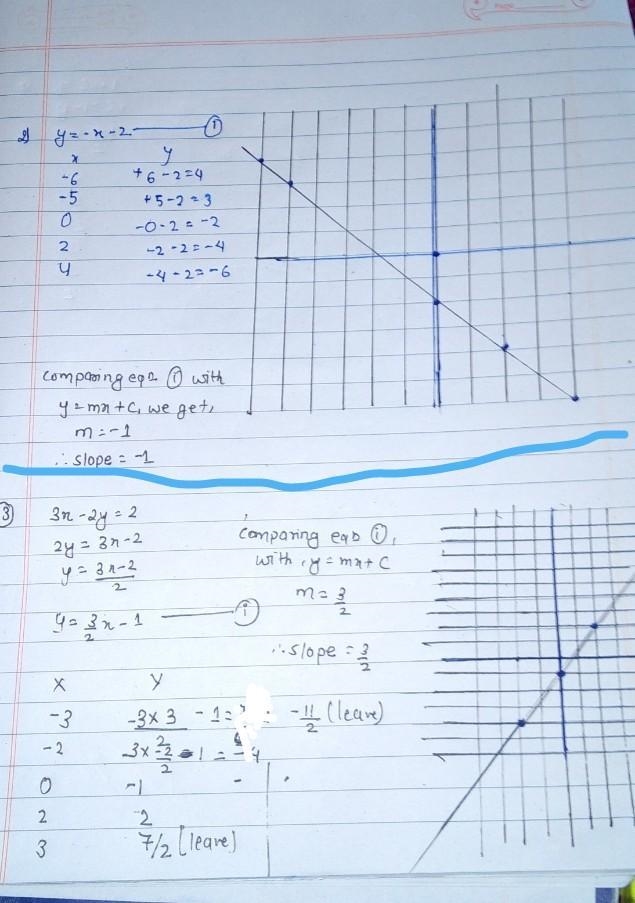 2) y = -x - 2 ——— ①
x y
-6 +6-2=4
-5 +5-2=3
0 -0-2=-2
2 -2-2=-4
4 -4-2=-6
comparing eqn ① with
y = mx + c, we get,
m = -1
∴ slope = -1
③ 3x - 2y = 2
2y = 3x - 2
y = 3x-2/2
y = 3/2 x - 1 ——— ①
comparing eqn ①,
with, y = mx + c
m = 3/2
∴ slope = 3/2
x y
-3 -3×3/2 - 1 = -11/2 (leave)
-2 3×-2/2 - 1 = -4
0 -1
2 2
3 7/2 [leave]